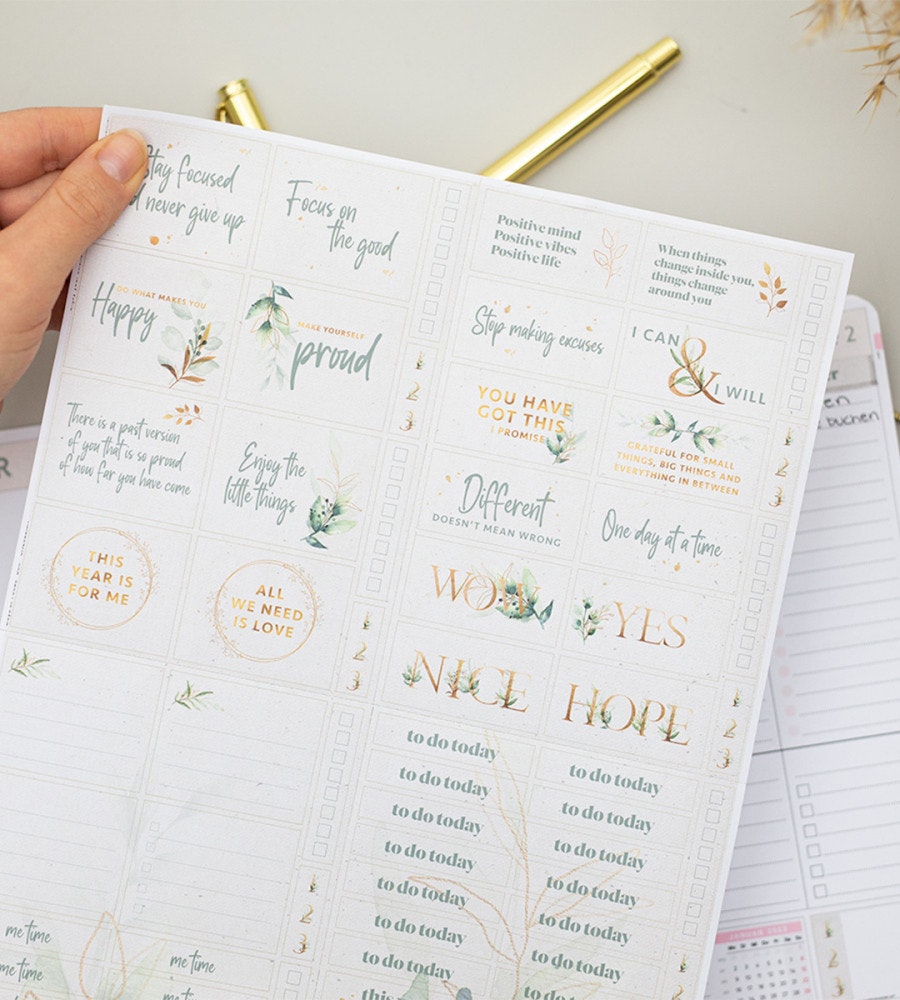 Stay focused
never give up
Focus on
the good
DO WHAT MAKES YOU
Happy
MAKE YOURSELF
proud
There is a past version
of you that is so proud
of how far you have come
Enjoy the
little things
THIS
YEAR IS
FOR ME
ALL
WE NEED
IS LOVE
1
2
3
1
2
3
Positive mind
Positive vibes
Positive life
When things
change inside you,
things change
around you
Stop making excuses
I CAN
&
I WILL
YOU HAVE
GOT THIS
I PROMISE
GRATEFUL FOR SMALL
THINGS, BIG THINGS AND
EVERYTHING IN BETWEEN
Different
DOESN'T MEAN WRONG
One day at a time
WOW
YES
NICE
HOPE
1
2
3
1
2
3
to do today
to do today
to do today
to do today
to do today
to do today
to do today
to do today
to do today
to do today
to do today
to do today
to do today
to do today
me time
me time
me time
me time
1
2
3
R
2
buchen
JANUAR
2
3